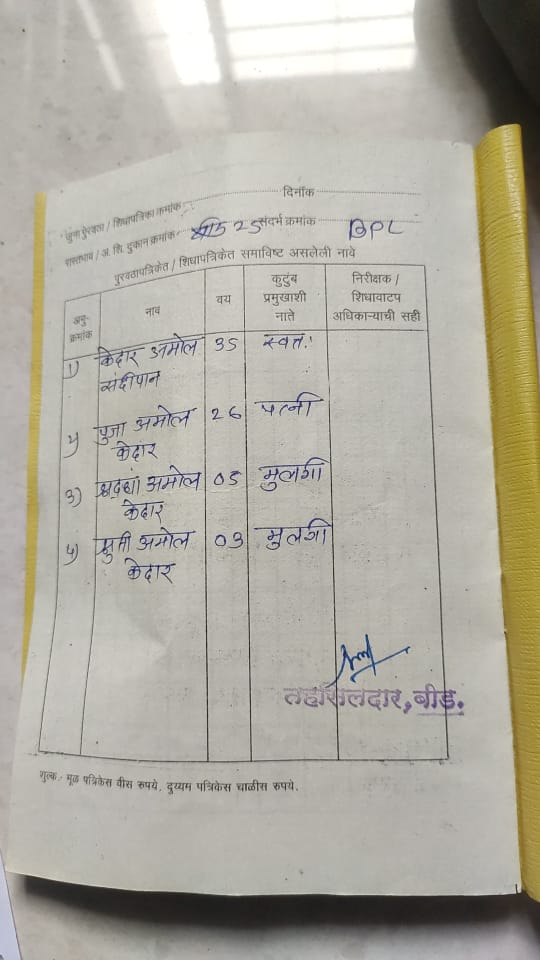 दिनाँक
जुना पुरवठा / शिधापत्रिका क्रमांक
रास्तभाव / अ. शि. दुकान क्रमांक 25 संदर्भ क्रमांक BPL
पुरवठापत्रिकेत / शिधापत्रिकेत समाविष्ट असलेली नावे
अनु-क्रमांक नाव वय कुटुंब प्रमुखाशी नाते निरीक्षक / शिधावाटप अधिकाऱ्याची सही
1) केदार अमोल 35 स्वतः
संदीपान
पुजा अमोल 26 पत्नी
केदार
3) श्रध्दा अमोल 05 मुलगी
केदार
अमोल 03 मुलगी
केदार
तहासलदार, बीड.
शुल्क:- मूळ पत्रिकेस वीस रुपये, दुय्यम पत्रिकेस चाळीस रुपये.